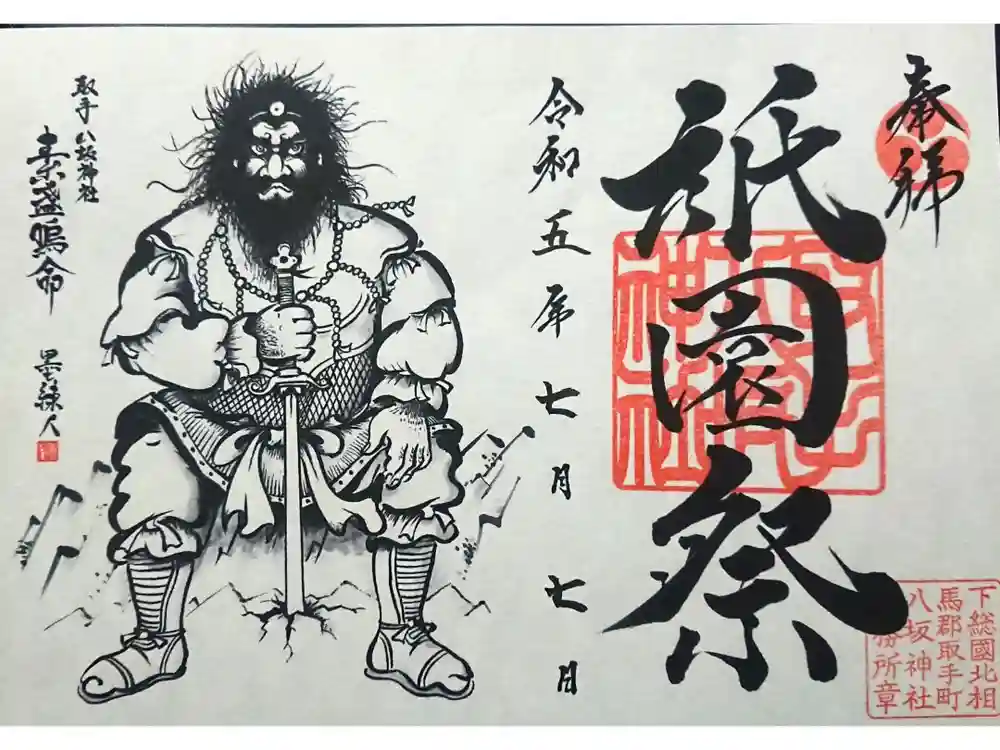 奉拝
祇園祭
下総國北相
馬郡取手町
八坂神社
務所章
令和五年七月七日
取手八坂神社
素盞嗚命